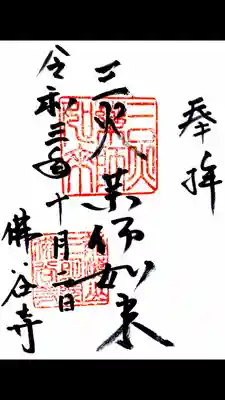 奉拝
三火、薬師如来
令和三年十月二日
佛谷寺